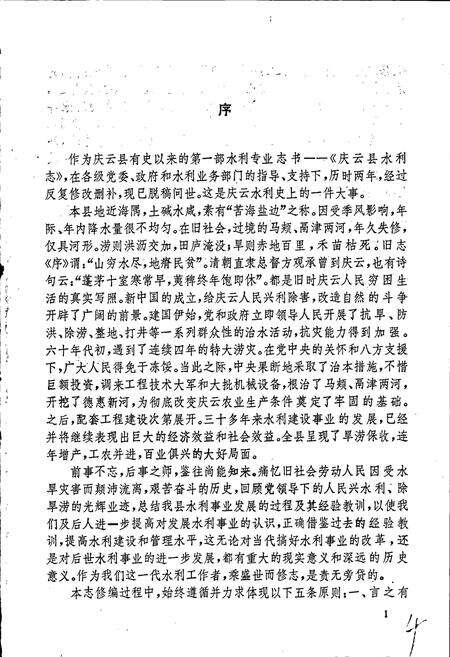 序
作为庆云县有史以来的第一部水利专业志书——《庆云县水利
志》，在各级党委、政府和水利业务部门的指导、支持下，历时两年，经过
反复修改删补，现已脱稿问世。这是庆云水利史上的一件大事。
本县地近海隅，土碱水咸，素有“苦海盐边”之称。因受季风影响，年
际、年内降水量很不均匀。在旧社会，过境的马颊、鬲津两河，年久失修，
仅具河形。涝则洪沥交加，田庐淹没；旱则赤地百里，禾苗枯死。旧志
《序》谓：“山穷水尽，地瘠民贫”。清朝直隶总督方观承曾到庆云，也有诗
句云：“蓬茅十室寒常早，荑稗终年饱即休”。都是旧时庆云人民穷困生
活的真实写照。新中国的成立，给庆云人民兴利除害，改造自然的斗争
开辟了广阔的前景。建国伊始，党和政府立即领导人民开展了抗旱、防
洪、除涝、整地、打井等一系列群众性的治水活动，抗灾能力得到加强。
六十年代初，遇到了连续四年的特大涝灾。在党中央的关怀和八方支援
下，广大人民得免于冻馁。当此之际，中央果断地采取了治本措施，不惜
巨额投资，调来工程技术大军和大批机械设备，根治了马颊、鬲津两河，
开挖了德惠新河，为彻底改变庆云农业生产条件奠定了牢固的基础。
之后，配套工程建设次第展开。三十多年来水利建设事业的发展，已经
并将继续表现出巨大的经济效益和社会效益。全县呈现了旱涝保收，连
年增产，工农并进，百业俱兴的大好局面。
前事不忘，后事之师，鉴往尚能知来。痛忆旧社会劳动人民因受水
旱灾害而颠沛流离，艰苦奋斗的历史，回顾党领导下的人民兴水利、除
旱涝的光辉业迹，总结我县水利事业发展的过程及其经验教训，以使我
们及后人进一步提高对发展水利事业的认识，正确借鉴过去的经验教
训，提高水利建设和管理水平，这无论对当代搞好水利事业的改革，还
是对后世水利事业的进一步发展，都有重大的现实意义和深远的历史
意义。作为我们这一代水利工作者，乘盛世而修志，是责无旁贷的。
本志修编过程中，始终遵循并力求体现以下五条原则：一、言之有
1